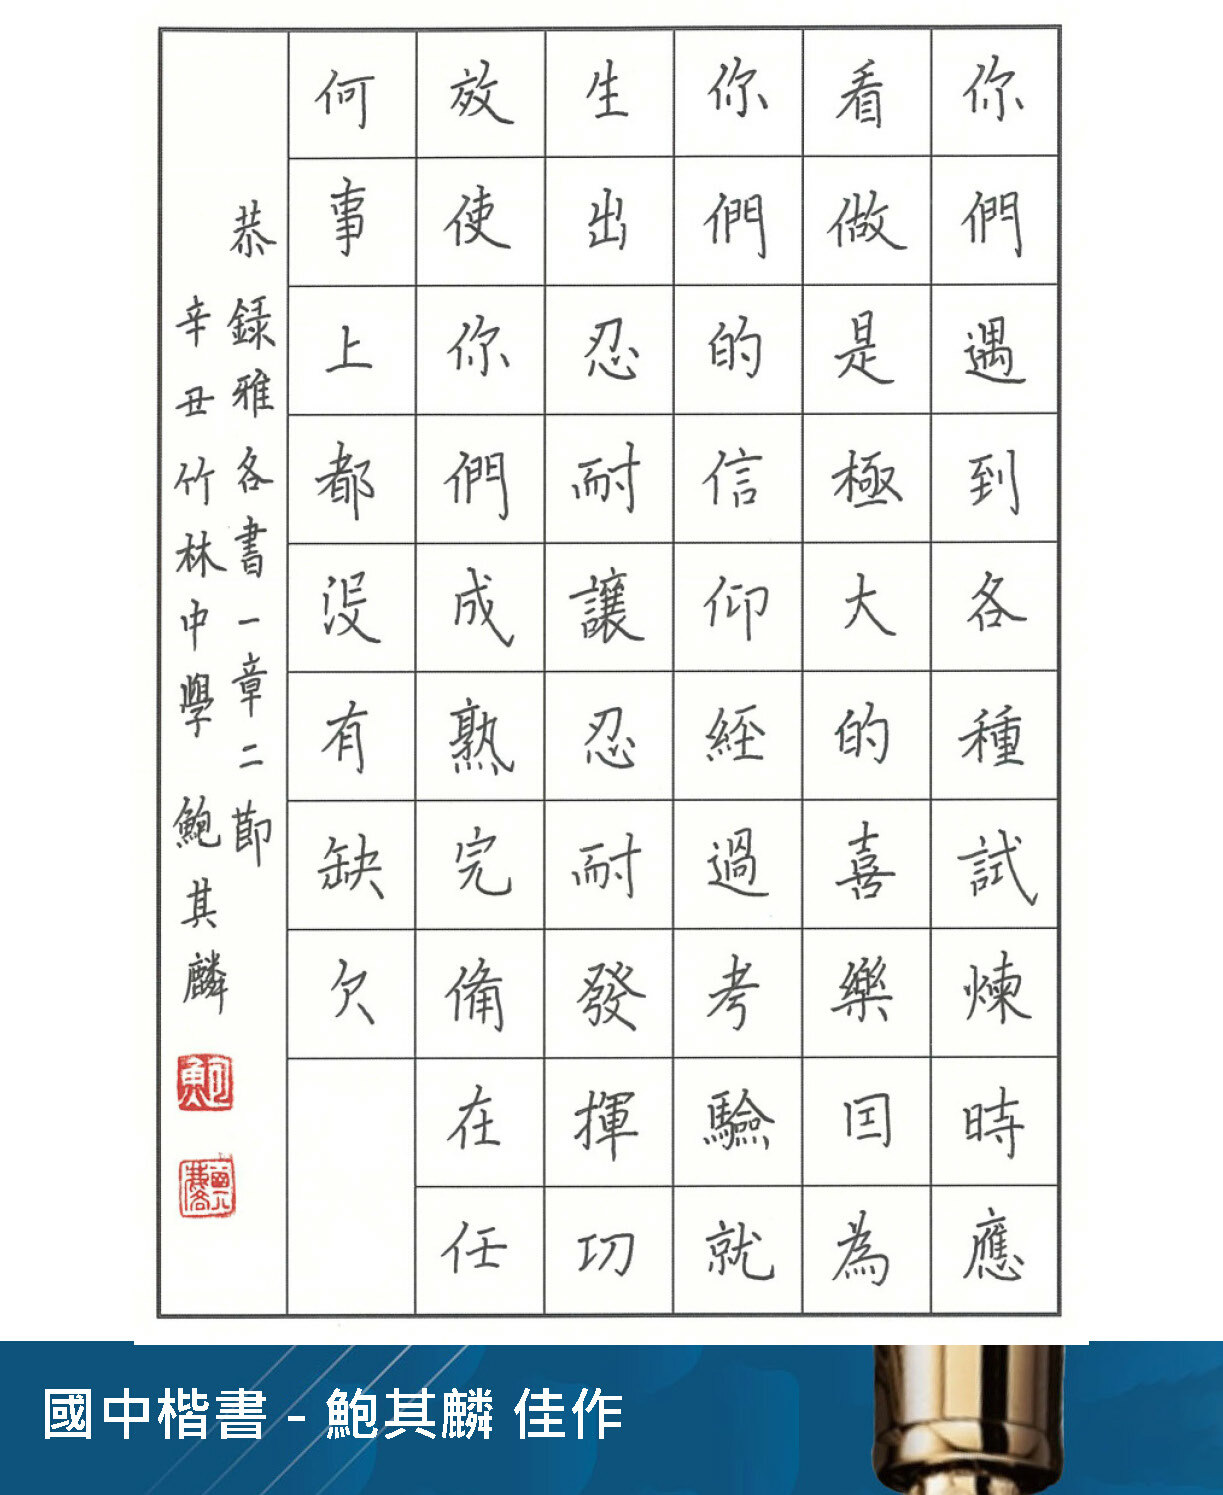 你們遇到各種試煉時應
看做是極大的喜樂因為
你們的信仰經過考驗就
生出忍耐讓忍耐發揮功
效使你們成熟完備在任
何事上都沒有缺欠
恭錄雅各書一章二節
辛丑竹林中學 鮑其麟
鮑
國中楷書 - 鮑其麟 佳作